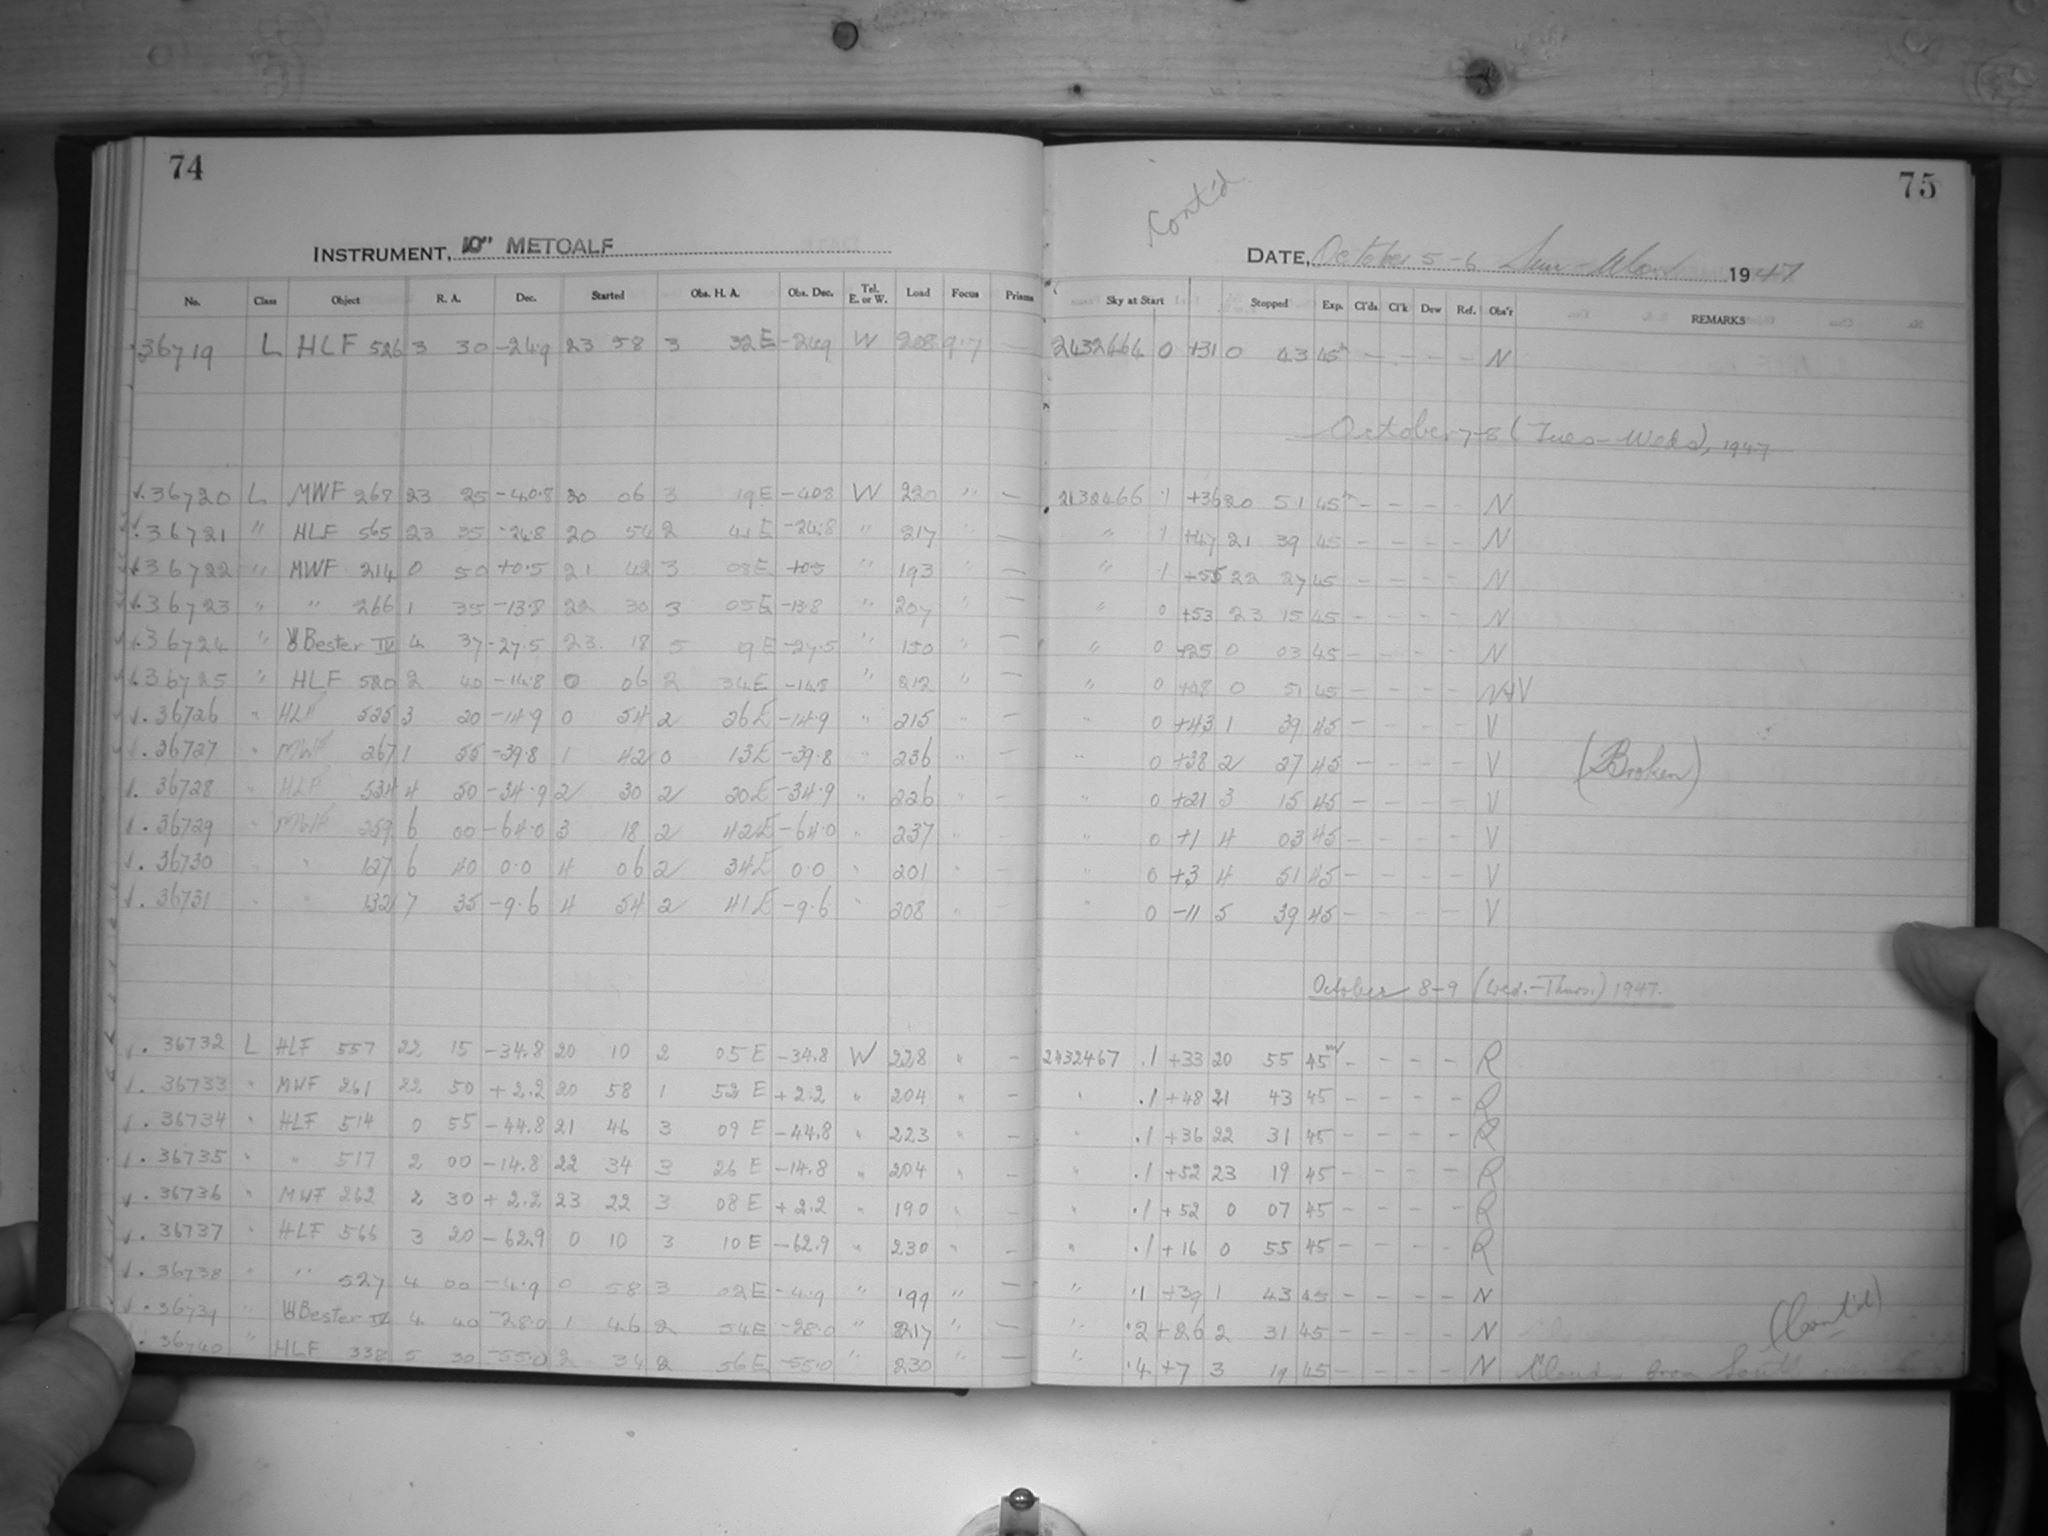 74
INSTRUMENT, 10" METCALF
No. Class Object R. A. Dec. Started Obs. H. A. Obs. Dec. Tel. E. or W. Load Focus Prisms
36719 L HLF 526 3 30 -24.9 23 58 3 32E -24.9 W 208 9.7 —
√. 36720 L MWF 268 23 25 -40.8 20 06 3 19E -40.8 W 220 " —
√. 36721 " HLF 565 23 35 -24.8 20 54 2 41E -24.8 " 217 " —
√. 36722 " MWF 214 0 50 +0.5 21 42 3 08E +0.5 " 193 " —
√. 36723 " " 266 1 35 -13.8 22 30 3 05E -13.8 " 207 " —
√. 36724 " Bester IV 4 37 -27.5 23 18 5 19E -27.5 " 150 " —
√. 36725 " HLF 520 2 40 -14.8 0 06 2 34E -14.8 " 212 " —
√. 36726 " HLF 525 3 20 -14.9 0 54 2 26E -14.9 " 215 " —
√. 36727 " MWF 267 1 55 -39.8 1 42 0 13E -39.8 " 236 " —
√. 36728 " HLF 534 4 50 -34.9 2 30 2 20E -34.9 " 226 " —
√. 36729 " MWF 259 6 00 -64.0 3 18 2 42E -64.0 " 237 " —
√. 36730 " " 127 6 40 0.0 4 06 2 34E 0.0 " 201 " —
√. 36731 " " 132 7 35 -9.6 4 54 2 41E -9.6 " 208 " —
√. 36732 L HLF 557 22 15 -34.8 20 10 2 05 E -34.8 W 228 " —
√. 36733 " MWF 261 22 50 +2.2 20 58 1 52 E +2.2 " 204 " —
√. 36734 " HLF 514 0 55 -44.8 21 46 3 09 E -44.8 " 223 " —
√. 36735 " " 517 2 00 -14.8 22 34 3 26 E -14.8 " 204 " —
√. 36736 " MWF 262 2 30 +2.2 23 22 3 08 E +2.2 " 190 " —
√. 36737 " HLF 566 3 20 -62.9 0 10 3 10 E -62.9 " 230 " —
√. 36738 " " 527 4 00 -4.9 0 58 3 02E -4.9 " 199 " —
√. 36739 " Bester IV 4 40 -28.0 1 46 2 54E -28.0 " 217 " —
√. 36740 " HLF 338 5 30 -55.0 2 34 2 56E -55.0 " 230 " —
75
Cont'd
DATE, October 5-6 Sun-Mon 1947
Sky at Start Stopped Exp. Cl'ds Cl'k Dew Ref. Obs'r REMARKS
2432464 0 +31 0 43 45m — — — — N
October 7-8 (Tues-Weds), 1947
2432466 .1 +36 20 51 45m — — — — N
" .1 +47 21 39 45 — — — — N
" .1 +55 22 27 45 — — — — N
" 0 +53 23 15 45 — — — — N
" 0 +25 0 03 45 — — — — N
" 0 +48 0 51 45 — — — — N+V
0 +43 1 39 45 — — — — V
" 0 +38 2 27 45 — — — — V (Broken)
" 0 +21 3 15 45 — — — — V
" 0 +1 4 03 45 — — — — V
" 0 +3 4 51 45 — — — — V
" 0 -11 5 39 45 — — — — V
October 8-9 (Wed.-Thurs.) 1947.
2432467 .1 +33 20 55 45m — — — — R
" .1 +48 21 43 45 — — — — R
" .1 +36 22 31 45 — — — — R
" .1 +52 23 19 45 — — — — R
" .1 +52 0 07 45 — — — — R
" .1 +16 0 55 45 — — — — R
" .1 +39 1 43 45 — — — — N
" .2 +26 2 31 45 — — — — N (Cont'd)
" .4 +7 3 19 45 — — — — N Clouds from South